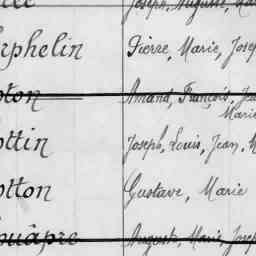 Joseph, Auguste,
rphelin Pierre, Marie, Jose
oton Amand, François, Jea
Marie
ottin Joseph, Louis, Jean, M
otton Gustave, Marie
ouâpre Auguste, Marie, Josep